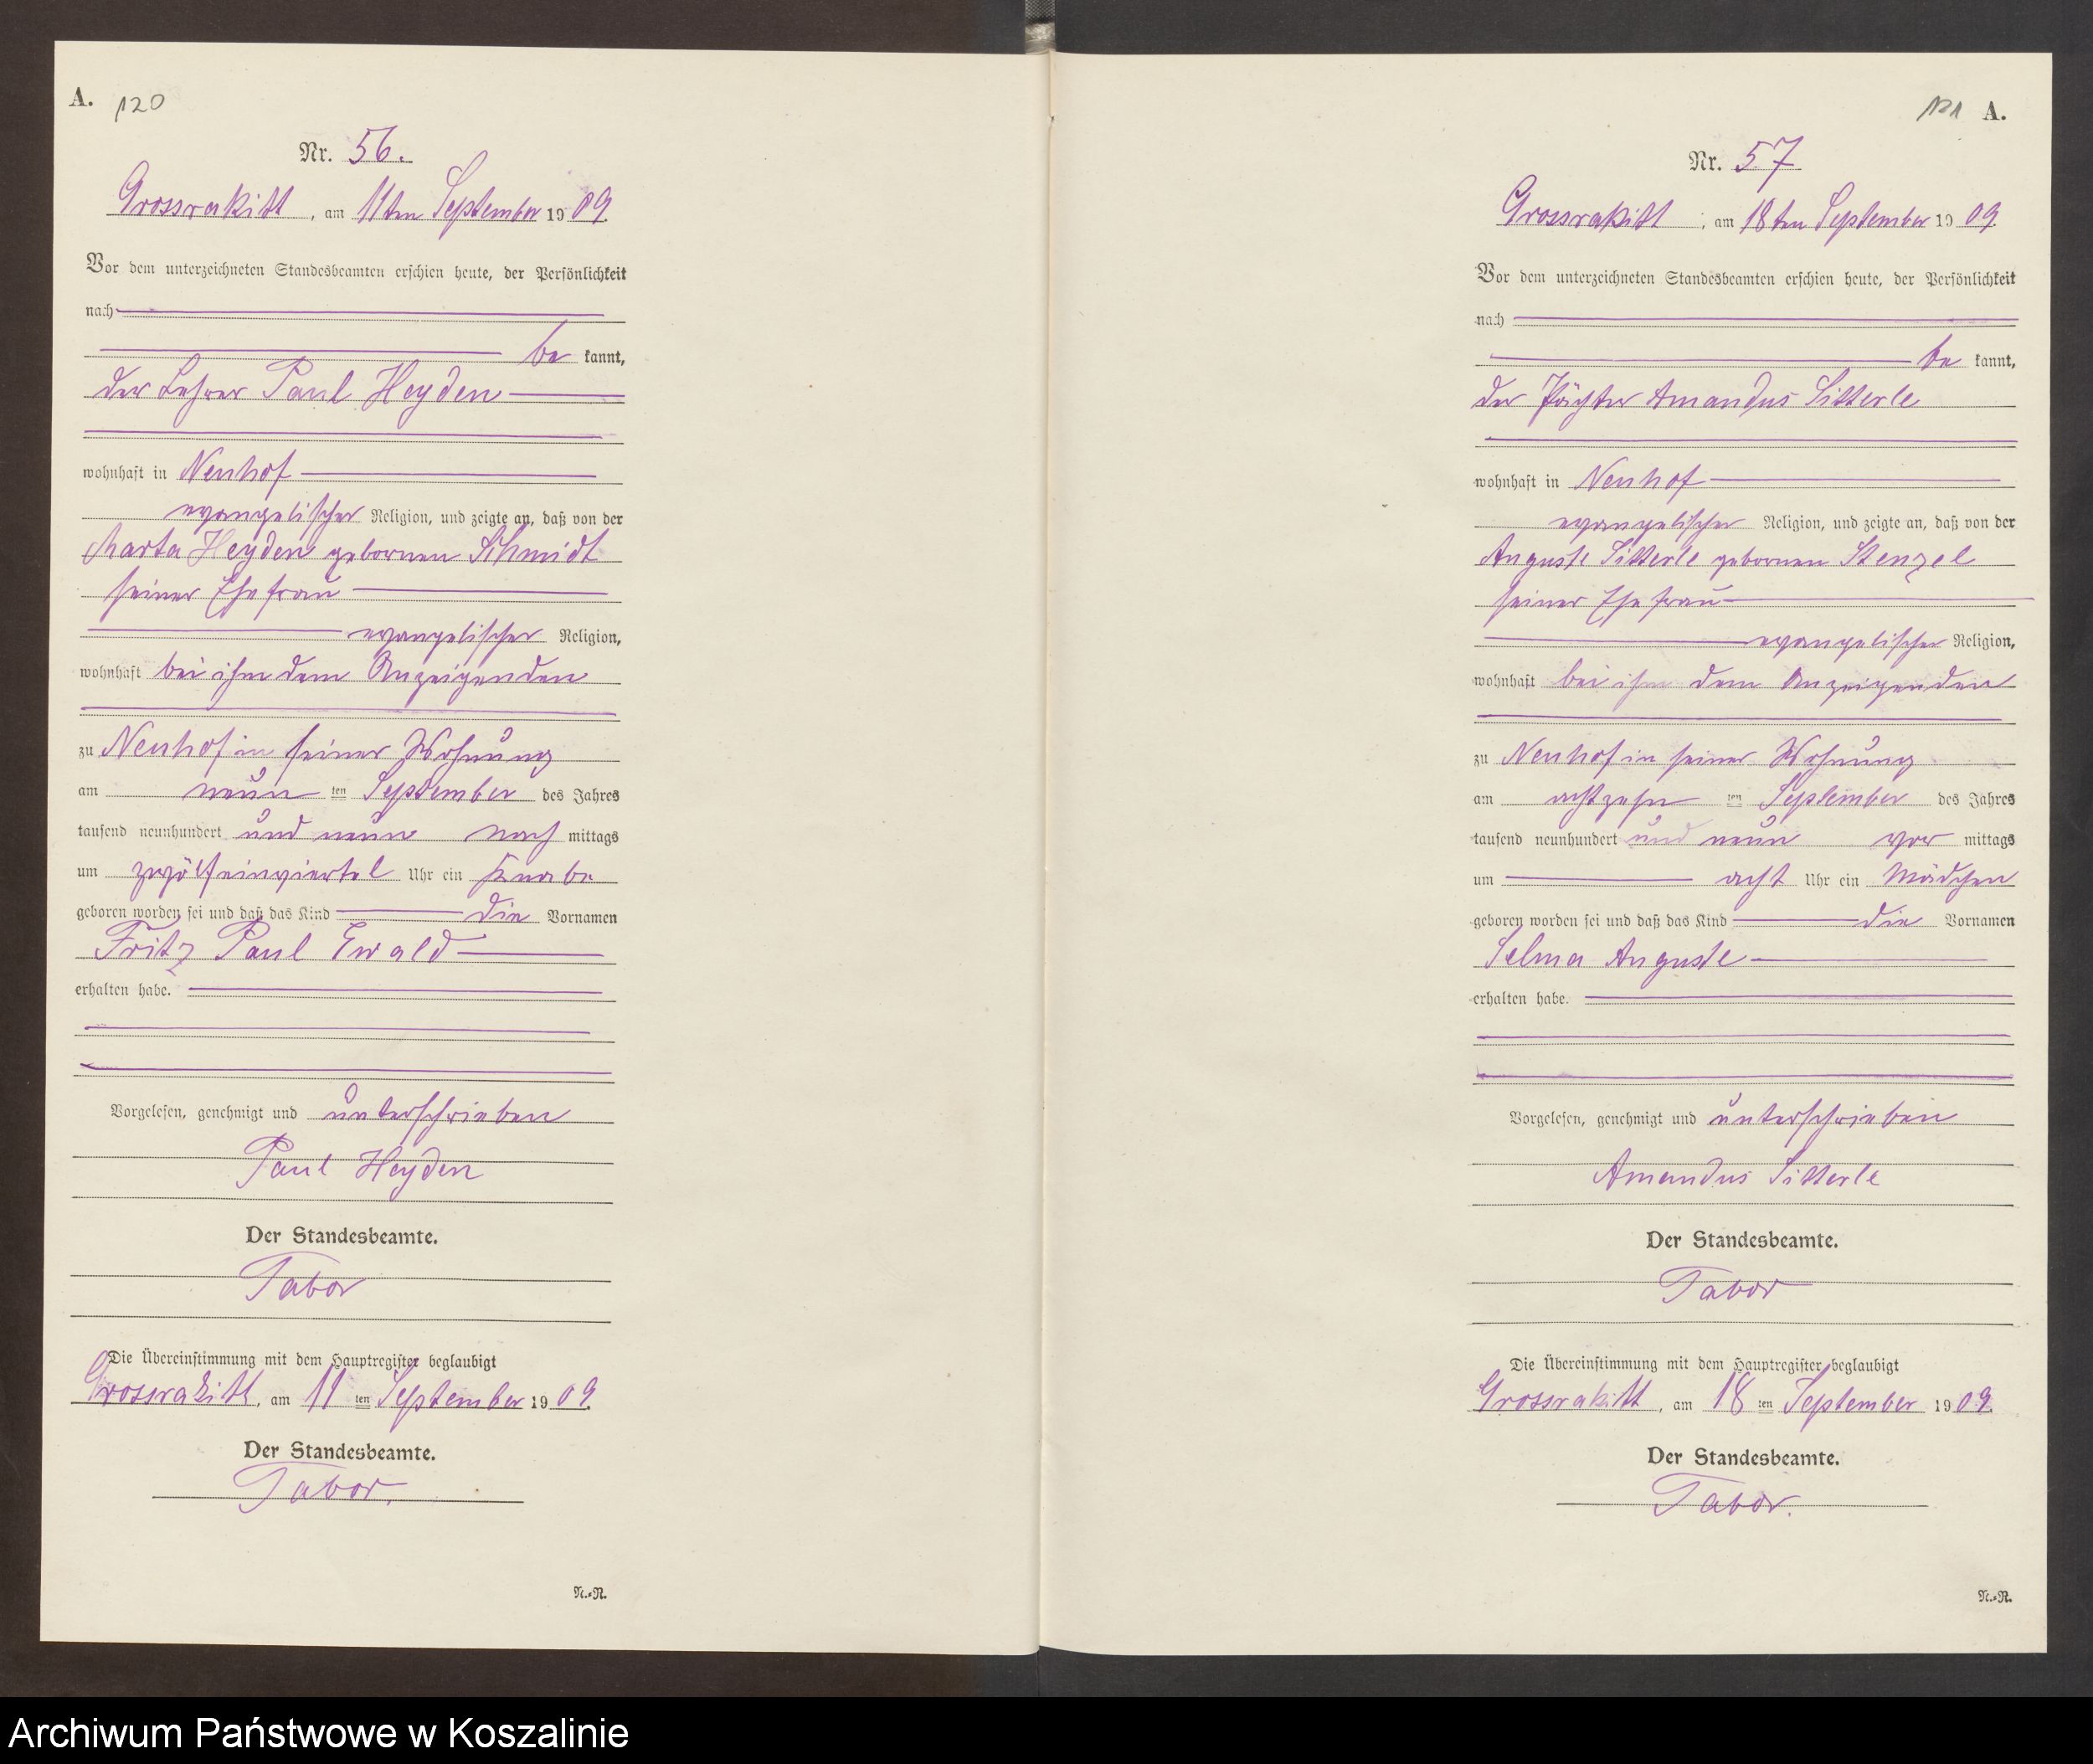 A. 120
Nr. 56.
Grossrakitt, am 11ten September 1909.
Vor dem unterzeichneten Standesbeamten erschien heute, der Persönlichkeit
nach
be kannt,
der Lehrer Paul Heyden
wohnhaft in Neuhof
evangelischer Religion, und zeigte an, daß von der
Marta Heyden gebornen Schmidt
seiner Ehefrau
evangelischer Religion,
wohnhaft bei ihm dem Anzeigenden
zu Neuhof in seiner Wohnung
am neun ten September des Jahres
tausend neunhundert und neun nach mittags
um zwölfeinviertel Uhr ein Knabe
geboren worden sei und daß das Kind die Vornamen
Fritz Paul Ewald
erhalten habe.
Vorgelesen, genehmigt und unterschrieben
Paul Heyden
Der Standesbeamte.
Tabor
Die Übereinstimmung mit dem Hauptregister beglaubigt
Grossrakitt, am 11 ten September 1909.
Der Standesbeamte.
Tabor.
N.-R.
121 A.
Nr. 57
Grossrakitt, am 18ten September 1909.
Vor dem unterzeichneten Standesbeamten erschien heute, der Persönlichkeit
nach
be kannt,
der Pächter Amandus Sitterle
wohnhaft in Neuhof
evangelischer Religion, und zeigte an, daß von der
Auguste Sitterle gebornen Stenzel
seiner Ehefrau
evangelischer Religion,
wohnhaft bei ihm dem Anzeigenden
zu Neuhof in seiner Wohnung
am achtzehn ten September des Jahres
tausend neunhundert und neun vor mittags
um acht Uhr ein Mädchen
geboren worden sei und daß das Kind die Vornamen
Selma Auguste
erhalten habe.
Vorgelesen, genehmigt und unterschrieben
Amandus Sitterle
Der Standesbeamte.
Tabor
Die Übereinstimmung mit dem Hauptregister beglaubigt
Grossrakitt, am 18 ten September 1909.
Der Standesbeamte.
Tabor.
N.-R.
Archiwum Państwowe w Koszalinie